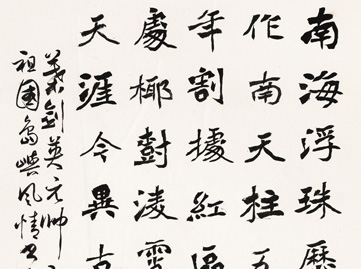 南海浮珠歷
作南天柱五
年割據紅區
處椰樹凌霄
天涯今異古
葉劍英元帥
祖國島嶼風情